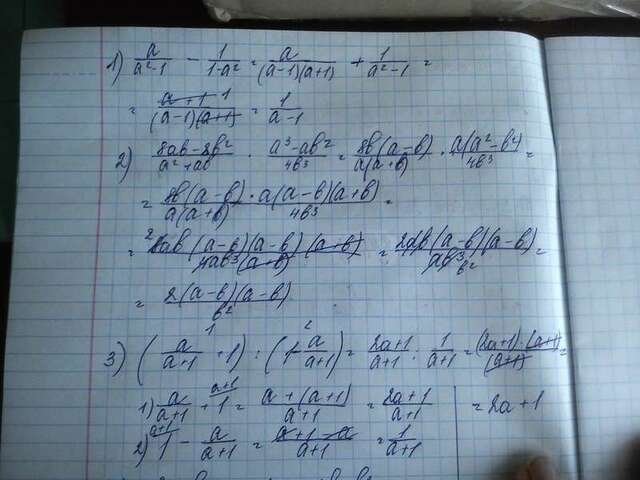 1) a/(a²-1) - 1/(1-a²) = a/((a-1)(a+1)) + 1/(a²-1) =
= (a+1)/((a-1)(a+1)) = 1/(a-1)
2) (8ab-8b²)/(a²+ab) · (a³-ab²)/(4b³) = 8b(a-b)/(a(a+b)) · a(a²-b²)/(4b³) =
= 8b(a-b)·a(a-b)(a+b)/(a(a+b) 4b³) =
= 8ab(a-b)(a-b)(a+b)/(4ab³(a+b)) = 2ab(a-b)(a-b)/(ab³) =
= 2(a-b)(a-b)/b²
3) (a/(a+1) + 1) : (1 - a/(a+1)) = (2a+1)/(a+1) : 1/(a+1) = (2a+1)·(a+1)/(a+1) =
1) a/(a+1) + 1 = (a+(a+1))/(a+1) = (2a+1)/(a+1) = 2a+1
2) 1 - a/(a+1) = (a+1-a)/(a+1) = 1/(a+1)